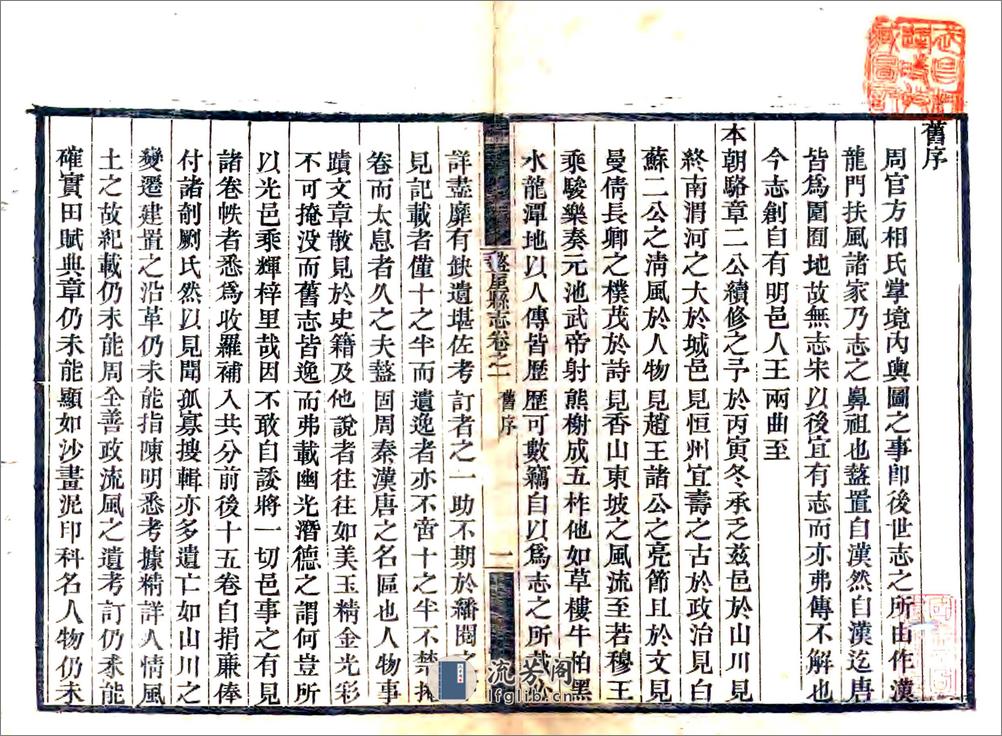 舊序
周官方相氏掌境內輿圖之事卽後世志之所由作漢
龍門扶風諸家乃志之鼻祖也盩置自漢然自漢迄唐
皆爲圍囿地故無志宋以後宜有志而亦弗傳不解也
今志創自有明邑人王兩曲至
本朝駱章二公續修之予於丙寅冬承乏茲邑於山川見
終南渭河之大於城邑見恒州宜壽之古於政治見白
蘇二公之淸風於人物見趙王諸公之亮節且於文見
曼倩長卿之樸茂於詩見香山東坡之風流至若穆王
乘駿樂奏元池武帝射熊榭成五柞他如草樓牛柏黑
水龍潭地以人傳皆歷歷可數竊自以爲志之所載
盩厔縣志卷之一 舊序 一
詳盡靡有缺遺堪佐考訂者之一助不期於繙閱之
見記載者僅十之半而遺逸者亦不啻十之半不禁掩
卷而太息者久之夫盩固周秦漢唐之名區也人物事
蹟文章散見於史籍及他說者往往如美玉精金光彩
不可掩没而舊志皆逸而弗載幽光潛德之謂何豈所
以光邑乘輝梓里哉因不敢自諉將一切邑事之有見
諸卷帙者悉爲收羅補入共分前後十五卷自捐亷俸
付諸剞劂氏然以見聞孤寡搜輯亦多遺亡如山川之
變遷建置之沿革仍未能指陳明悉考據精詳人情風
土之故紀載仍未能周全善政流風之遺考訂仍未能
確實田賦典章仍未能顯如沙畫泥印科名人物仍未
流芳阁
lfglib.com